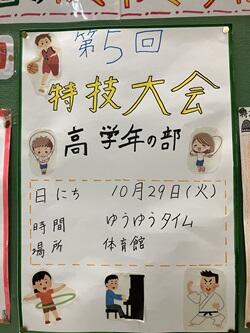 第5回
特技大会
高学年の部
日にち 10月29日(火)
時間 ゆうゆうタイム
場所 体育館